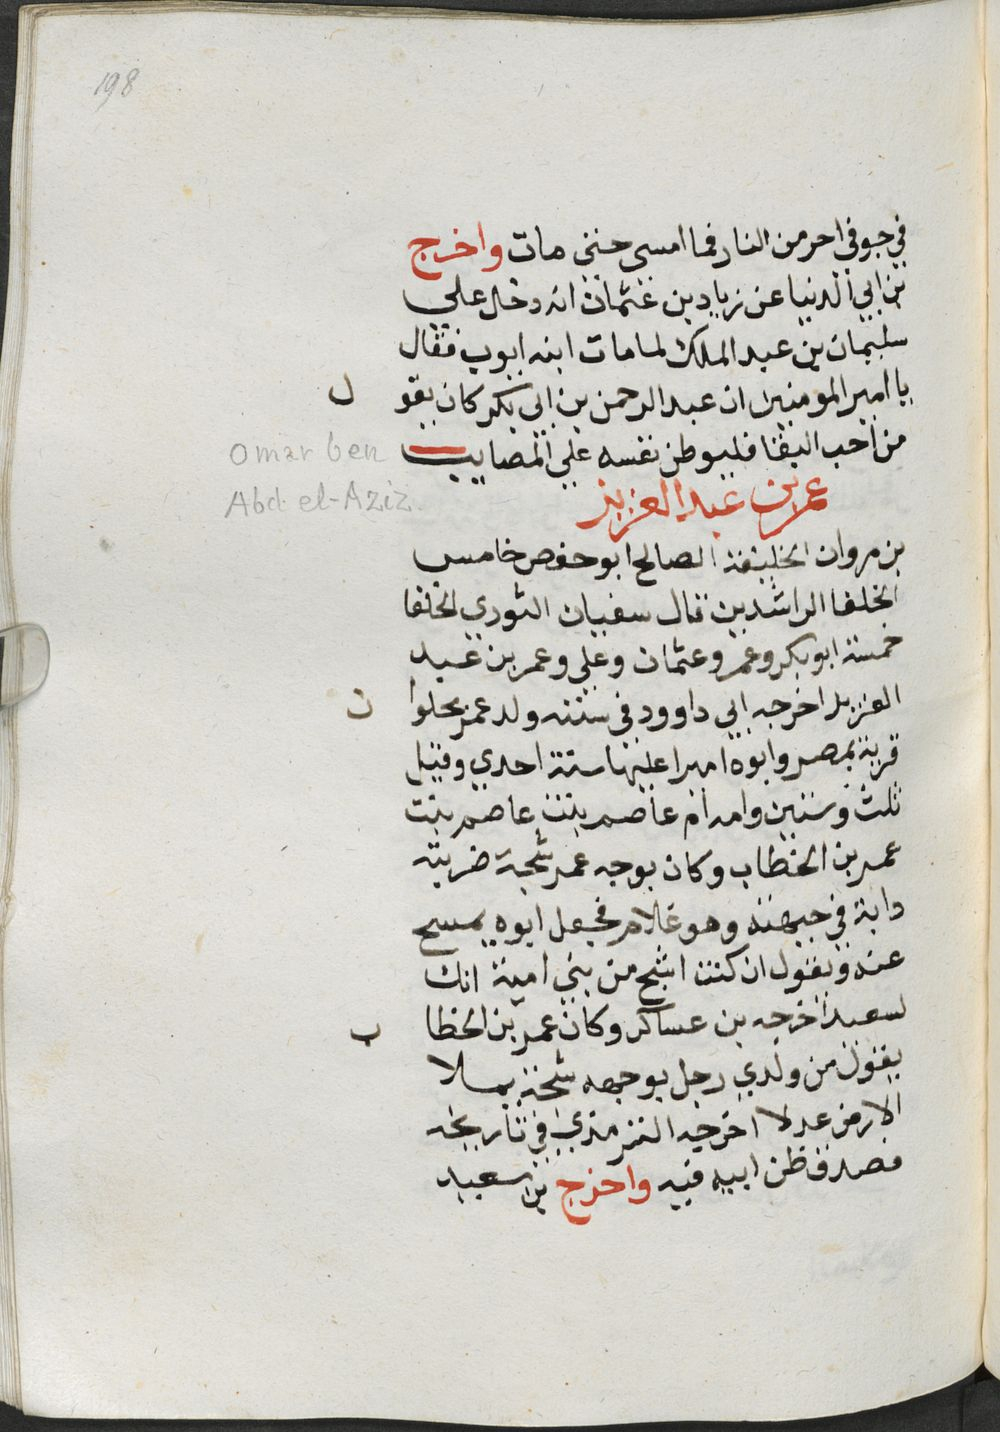 198
في جوفي احر من النار فما امسى حتى مات واخرج
بن ابي الدنيا عن زياد بن عثمان انه دخل على
سليمان بن عبد الملك لما مات ابنه ايوب فقال
يا امير المومنين ان عبد الرحمن بن ابي بكر كان يقو ل
من احب البقا فليوطن نفسه علي المصايب
Omar ben
Abd el-Aziz
عمر بن عبد العزيز
بن مروان الخليفة الصالح ابو حفص خامس
الخلفا الراشدين قال سفيان الثوري الخلفا
خمسة ابو بكر وعمر وعثمان وعلي وعمر بن عبد
العزيز اخرجه ابي داوود في سننه ولد عمر بحلوا ن
قرية بمصر وابوه اميرا عليها سنة احدي وقيل
ثلث وستين وامه ام عاصم بنت عاصم بنت
عمر بن الخطاب وكان بوجه عمر شجة ضربته
دابة في جبهته وهو غلام فجعل ابوه يمسح
عنه ويقول ان كنت اشج من بني امية انك
لسعيد اخرجه بن عساكر وكان عمر بن الخطا ب
يقول من ولدي رجل بوجهه شجة يملا
الارض عدلا اخرجه الترمذي في تاريخه
فصدق ظن ابيه فيه واخرج بن سعيد